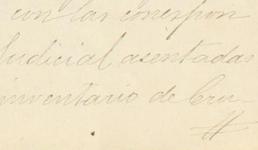 con las correspon
Judicial asentadas
inventario de Cru-